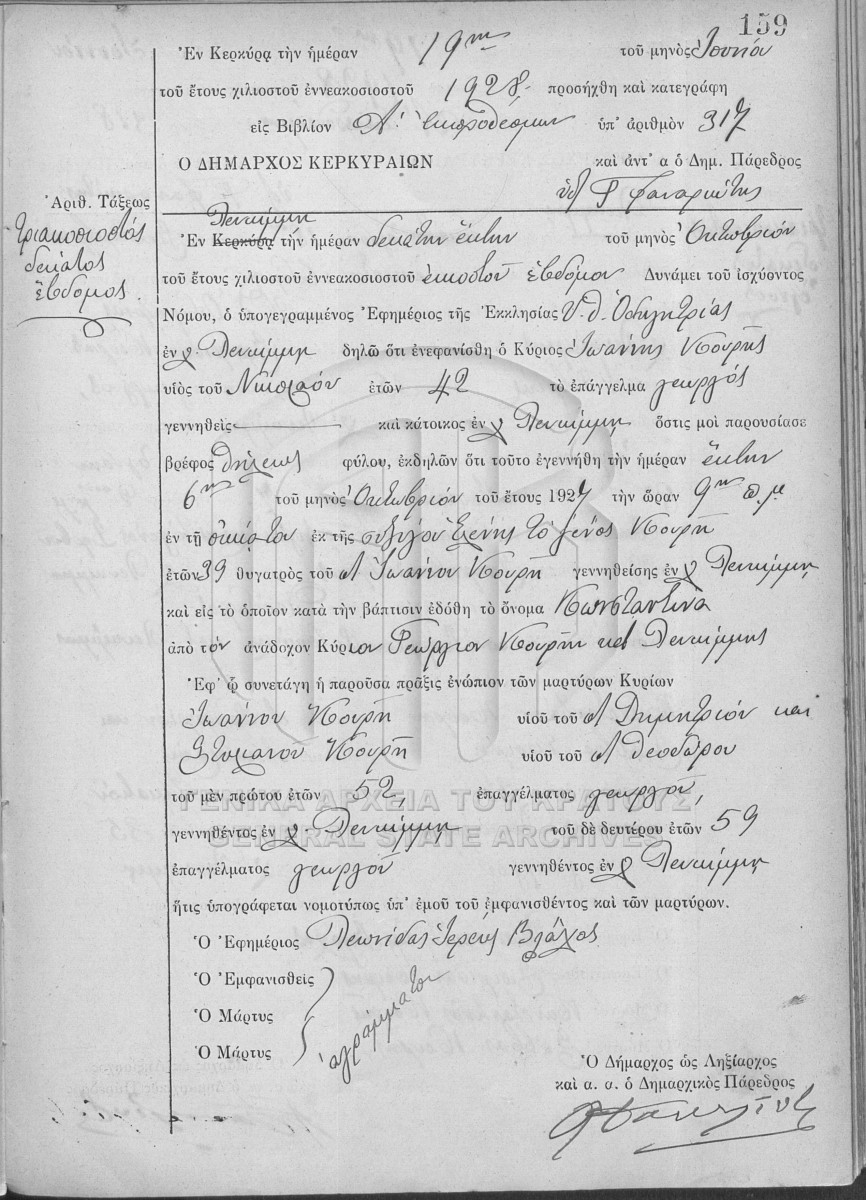 159
Ἐν Κερκύρᾳ τὴν ἡμέραν 19ην τοῦ μηνὸς Ἰουνίου
τοῦ ἔτους χιλιοστοῦ ἐννεακοσιοστοῦ 1928 προσήχθη καὶ κατεγράφη
εἰς Βιβλίον Α΄ ἐκπροθέσμων ὑπ' ἀριθμὸν 317
Ο ΔΗΜΑΡΧΟΣ ΚΕΡΚΥΡΑΙΩΝ καὶ ἀντ' α ὁ Δημ. Πάρεδρος
Ἀριθ. Τάξεως
τριακοσιοστός
δέκατος
ἕβδομος.
Λευκίμμῃ
Ἐν Κερκύρᾳ τὴν ἡμέραν δεκάτην ἕκτην τοῦ μηνὸς Ὀκτωβρίου
τοῦ ἔτους χιλιοστοῦ ἐννεακοσιοστοῦ εἰκοστοῦ ἑβδόμου Δυνάμει τοῦ ἰσχύοντος
Νόμου, ὁ ὑπογεγραμμένος Ἐφημέριος τῆς Ἐκκλησίας Υ. Θ. Ὁδηγητρίας
ἐν χ. Λευκίμμῃ δηλῶ ὅτι ἐνεφανίσθη ὁ Κύριος Ἰωάννης Κουρῆς
υἱὸς τοῦ Νικολάου ἐτῶν 42 τὸ ἐπάγγελμα γεωργός
γεννηθεὶς καὶ κάτοικος ἐν χ Λευκίμμῃ ὅστις μοὶ παρουσίασε
βρέφος θήλεως φύλου, ἐκδηλῶν ὅτι τοῦτο ἐγεννήθη τὴν ἡμέραν ἕκτην
6ην τοῦ μηνὸς Ὀκτωβρίου τοῦ ἔτους 1927 τὴν ὥραν 9ην π.μ
ἐν τῇ οἰκίᾳ του ἐκ τῆς συζύγου Ἑλένης τὸ γένος Κουρῆ
ἐτῶν 39 θυγατρὸς τοῦ Ἰωάννου Κουρῆ γεννηθείσης ἐν χ Λευκίμμῃ
καὶ εἰς τὸ ὁποῖον κατὰ τὴν βάπτισιν ἐδόθη τὸ ὄνομα Κωνσταντίνα
ἀπὸ τὸν ἀνάδοχον Κύριον Γεώργιον Κουρῆν Λευκίμμης
Ἐφ' ᾧ συνετάγη ἡ παροῦσα πρᾶξις ἐνώπιον τῶν μαρτύρων Κυρίων
Ἰωάννου Κουρῆ υἱοῦ τοῦ Δημητρίου καὶ
Στυλιανοῦ Κουρῆ υἱοῦ τοῦ Θεοδώρου
τοῦ μὲν πρώτου ἐτῶν 52, ἐπαγγέλματος γεωργοῦ,
ΓΕΝΙΚΑ ΑΡΧΕΙΑ ΤΟΥ ΚΡΑΤΟΥΣ
γεννηθέντος ἐν χ. Λευκίμμῃ τοῦ δὲ δευτέρου ἐτῶν 59
GENERAL STATE ARCHIVES
ἐπαγγέλματος γεωργοῦ γεννηθέντος ἐν χ Λευκίμμῃ
ἥτις ὑπογράφεται νομοτύπως ὑπ' ἐμοῦ τοῦ ἐμφανισθέντος καὶ τῶν μαρτύρων.
Ὁ Ἐφημέριος Λεωνίδας Ἱερεὺς Βλάχος
Ὁ Ἐμφανισθεὶς
Ὁ Μάρτυς ἀγράμματοι
Ὁ Μάρτυς
Ὁ Δήμαρχος ὡς Ληξίαρχος
καὶ α. α. ὁ Δημαρχικὸς Πάρεδρος